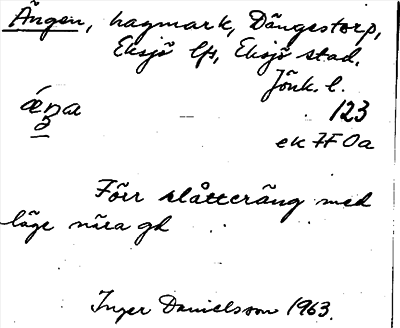 Ängen, hagmark, Dängestorp,
Eksjö lfs, Eksjö stad.
Jönk. l.
123
ek 7F 0a
Förr slåtteräng med
läge nära gd
Inger Danielsson 1963.